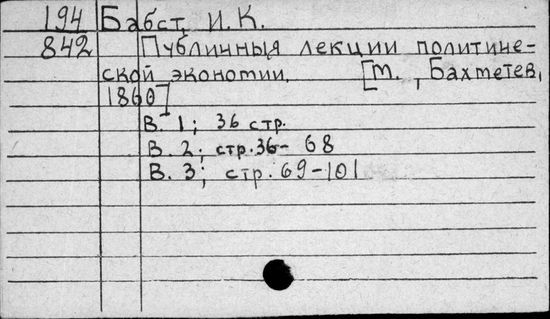 194 Бабст, И.К.
842 Публичныя лекции политиче-
ской экономии. [М., Бахметев,
1860]
В. 1; 36 стр.
В. 2; стр. 36- 68
В. 3; стр. 69-101